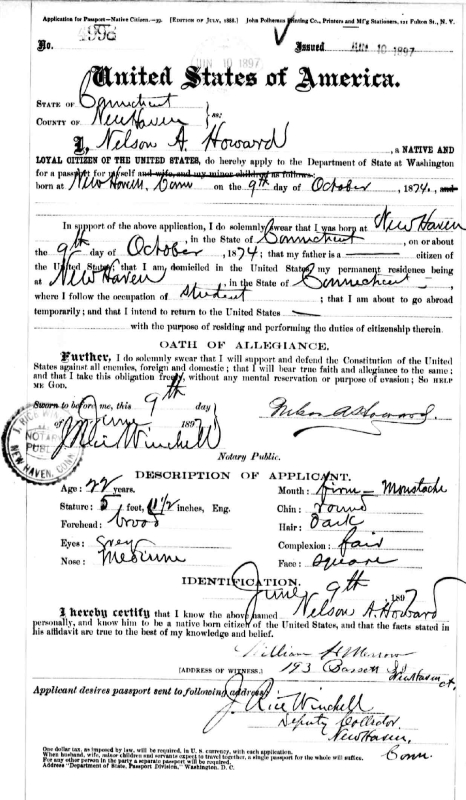 Application for Passport—Native Citizen.—29. [EDITION OF JULY, 1888.] John Polhemus Printing Co., Printers and M'f'g Stationers, 121 Fulton St., N. Y.
No. 4998 Issued JUN 10 1897
JUN 10 1897
United States of America.
STATE OF Connecticut
COUNTY OF New Haven } 88:
I, Nelson A. Howard, a NATIVE AND
LOYAL CITIZEN OF THE UNITED STATES, do hereby apply to the Department of State at Washington
for a passport for myself and wife, and my minor children as follows:
born at New Haven, Conn on the 9th day of October, 1874, and
In support of the above application, I do solemnly swear that I was born at New Haven
, in the State of Connecticut, on or about
the 9th day of October, 1874; that my father is a citizen of
the United States; that I am domiciled in the United States, my permanent residence being
at New Haven, in the State of Connecticut,
where I follow the occupation of student; that I am about to go abroad
temporarily; and that I intend to return to the United States
with the purpose of residing and performing the duties of citizenship therein.
OATH OF ALLEGIANCE.
Further, I do solemnly swear that I will support and defend the Constitution of the United
States against all enemies, foreign and domestic; that I will bear true faith and allegiance to the same;
and that I take this obligation freely, without any mental reservation or purpose of evasion; SO HELP
ME GOD.
Sworn to before me, this 9th day
of June 1897
Nelson A Howard.
J. Rice Winchell
Notary Public.
NOTARY PUBLIC
NEW HAVEN, CONN.
DESCRIPTION OF APPLICANT.
Age: 22 years. Mouth: firm — Moustache
Stature: 5 feet, 11 1/2 inches, Eng. Chin: round
Forehead: broad Hair: Dark
Eyes: Grey Complexion: fair
Nose: Medium Face: square
IDENTIFICATION.
June 9th 1897
I hereby certify that I know the above named Nelson A. Howard
personally, and know him to be a native born citizen of the United States, and that the facts stated in
his affidavit are true to the best of my knowledge and belief.
William H Merrow
[ADDRESS OF WITNESS.] 193 Bassett New Haven Ct.
Applicant desires passport sent to following address:
J. Rice Winchell
Deputy Collector
New Haven,
Conn.
One dollar tax, as imposed by law, will be required, in U. S. currency, with each application.
When husband, wife, minor children and servants expect to travel together, a single passport for the whole will suffice.
For any other person in the party a separate passport will be required.
Address "Department of State, Passport Division," Washington, D. C.